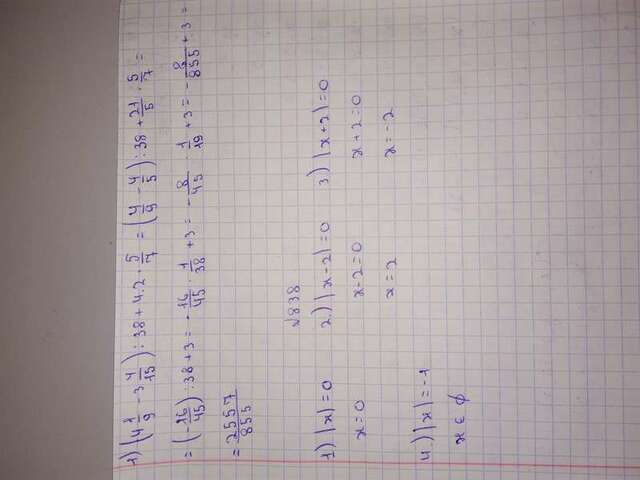 1) (4 1/9 - 3 4/15) : 38 + 4.2 · 5/7 = (4/9 - 4/5) : 38 + 21/5 · 5/7 =
= (-16/45) : 38 + 3 = -16/45 · 1/38 + 3 = -8/45 · 1/19 + 3 = -8/855 + 3 =
= 2557/855
№838
1) |x| = 0 2.) |x - 2| = 0 3) |x + 2| = 0
x = 0 x - 2 = 0 x + 2 = 0
x = 2 x = -2
4.) |x| = -1
x ∈ ∅